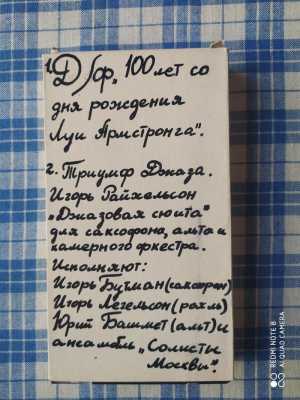 1. Д/ф. 100 лет со
дня рождения
Луи Армстронга".
2. Триумф Джаза.
Игорь Райхельсон
„Джазовая сюита"
для саксофона, альта и
камерного оркестра.
Исполняют:
Игорь Бутман (саксофон)
Игорь (рояль)
Юрий Башмет (альт) и
ансамбль „Солисты
Москвы".
REDMI NOTE 8
AI QUAD CAMERA